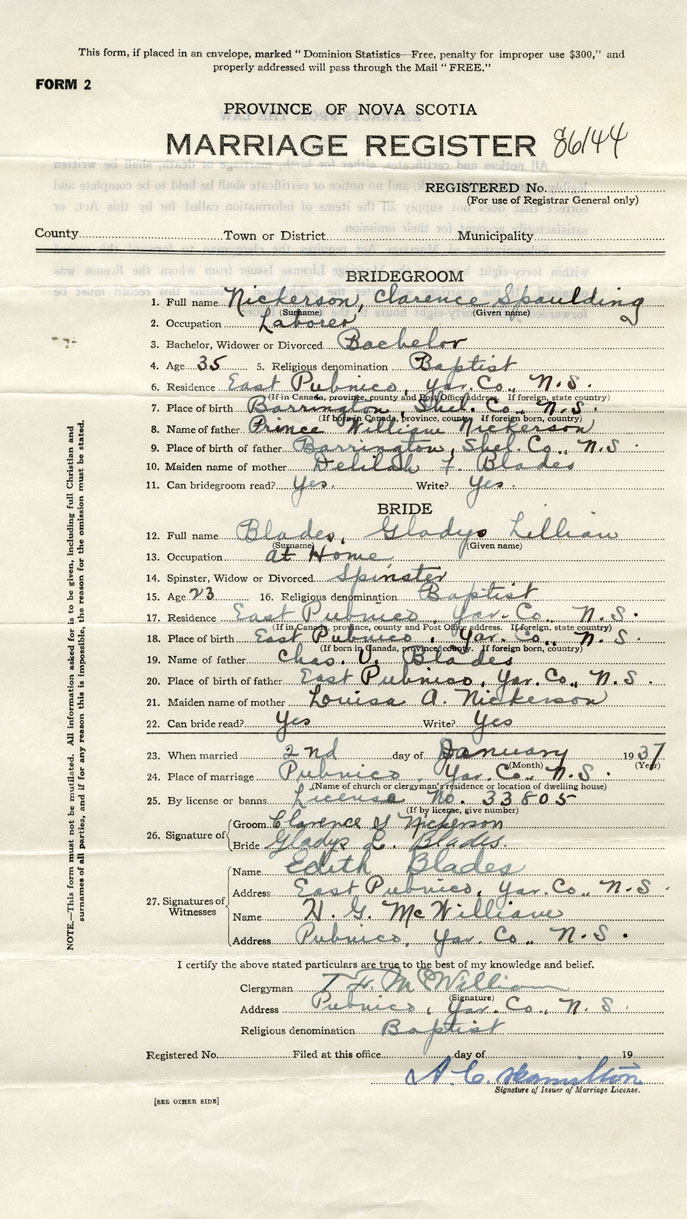 This form, if placed in an envelope, marked "Dominion Statistics—Free, penalty for improper use $300," and
properly addressed will pass through the Mail "FREE."
FORM 2
PROVINCE OF NOVA SCOTIA
MARRIAGE REGISTER 86144
REGISTERED No.
(For use of Registrar General only)
County Town or District Municipality
BRIDEGROOM
1. Full name Nickerson, Clarence Spaulding
(Surname) (Given name)
2. Occupation Laborer
3. Bachelor, Widower or Divorced Bachelor
4. Age 35 5. Religious denomination Baptist
6. Residence East Pubnico, Yar. Co., N.S.
(If in Canada, province, county and Post Office address. If foreign, state country)
7. Place of birth Barrington, Shel. Co., N.S.
(If born in Canada, province, county. If foreign born, country)
8. Name of father Prince William Nickerson
9. Place of birth of father Barrington, Shel. Co., N.S.
10. Maiden name of mother Delilah F. Blades
11. Can bridegroom read? Yes. Write? Yes.
BRIDE
12. Full name Blades, Gladys Lillian
(Surname) (Given name)
13. Occupation at Home
14. Spinster, Widow or Divorced Spinster
15. Age 23 16. Religious denomination Baptist
17. Residence East Pubnico Yar. Co., N.S.
(If in Canada, province, county and Post Office address. If foreign, state country)
18. Place of birth East Pubnico, Yar. Co., N.S.
(If born in Canada, province, county. If foreign born, country)
19. Name of father Chas. V. Blades
20. Place of birth of father East Pubnico, Yar. Co., N.S.
21. Maiden name of mother Louisa A. Nickerson
22. Can bride read? Yes Write? Yes
23. When married 2nd day of January 1937
(Month) (Year)
24. Place of marriage Pubnico, Yar. Co., N.S.
(Name of church or clergyman's residence or location of dwelling house)
25. By license or banns License No. 33805
(If by license, give number)
26. Signature of
Groom Clarence S Nickerson
Bride Gladys L. Blades.
27. Signatures of Witnesses
Name Edith Blades
Address East Pubnico, Yar. Co., N.S.
Name H. G. McWilliam
Address Pubnico, Yar. Co., N.S.
I certify the above stated particulars are true to the best of my knowledge and belief.
Clergyman McWilliam
(Signature)
Address Pubnico, Yar. Co., N.S.
Religious denomination Baptist
Registered No. Filed at this office day of 19
A. C. Hamilton
Signature of Issuer of Marriage License.
[SEE OTHER SIDE]
NOTE.—This form must not be mutilated. All information asked for is to be given, including full Christian and
surnames of all parties, and if for any reason this is impossible, the reason for the omission must be stated.